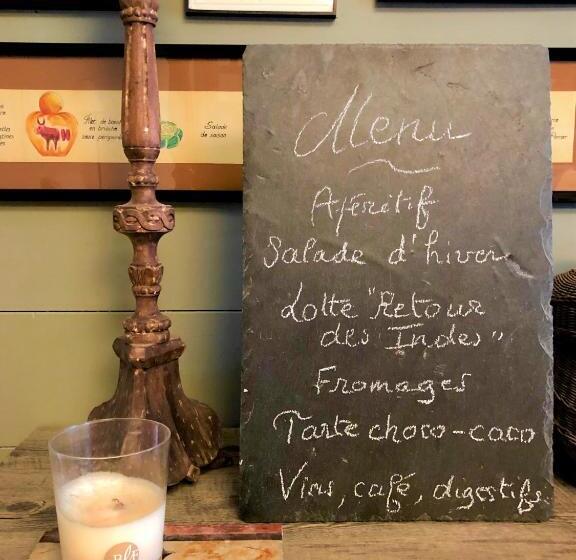 Filet de bœuf
en brioche
sauce périgourdine
Salade
de saison
Menu
Apéritif
Salade d'hiver
Lotte "Retour
des Indes"
Fromages
Tarte choco-caco
Vins, café, digestifs